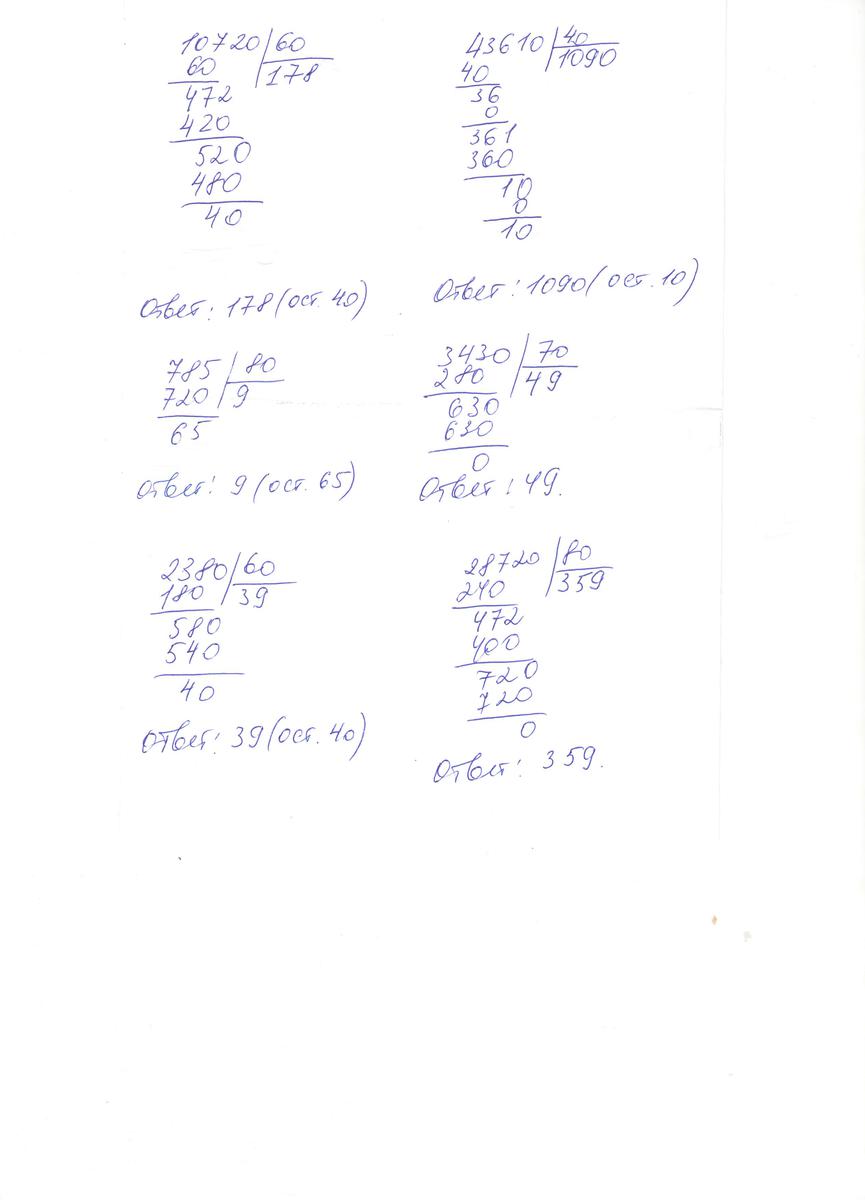 10720 60
60 178
472
420
520
480
40
Ответ: 178 (ост. 40)
43610 40
40 1090
36
0
361
360
10
0
10
Ответ: 1090 (ост. 10)
785 80
720 9
65
Ответ: 9 (ост. 65)
3430 70
280 49
630
630
0
Ответ: 49.
2380 60
180 39
580
540
40
Ответ: 39 (ост. 40)
28720 80
240 359
472
400
720
720
0
Ответ: 359.